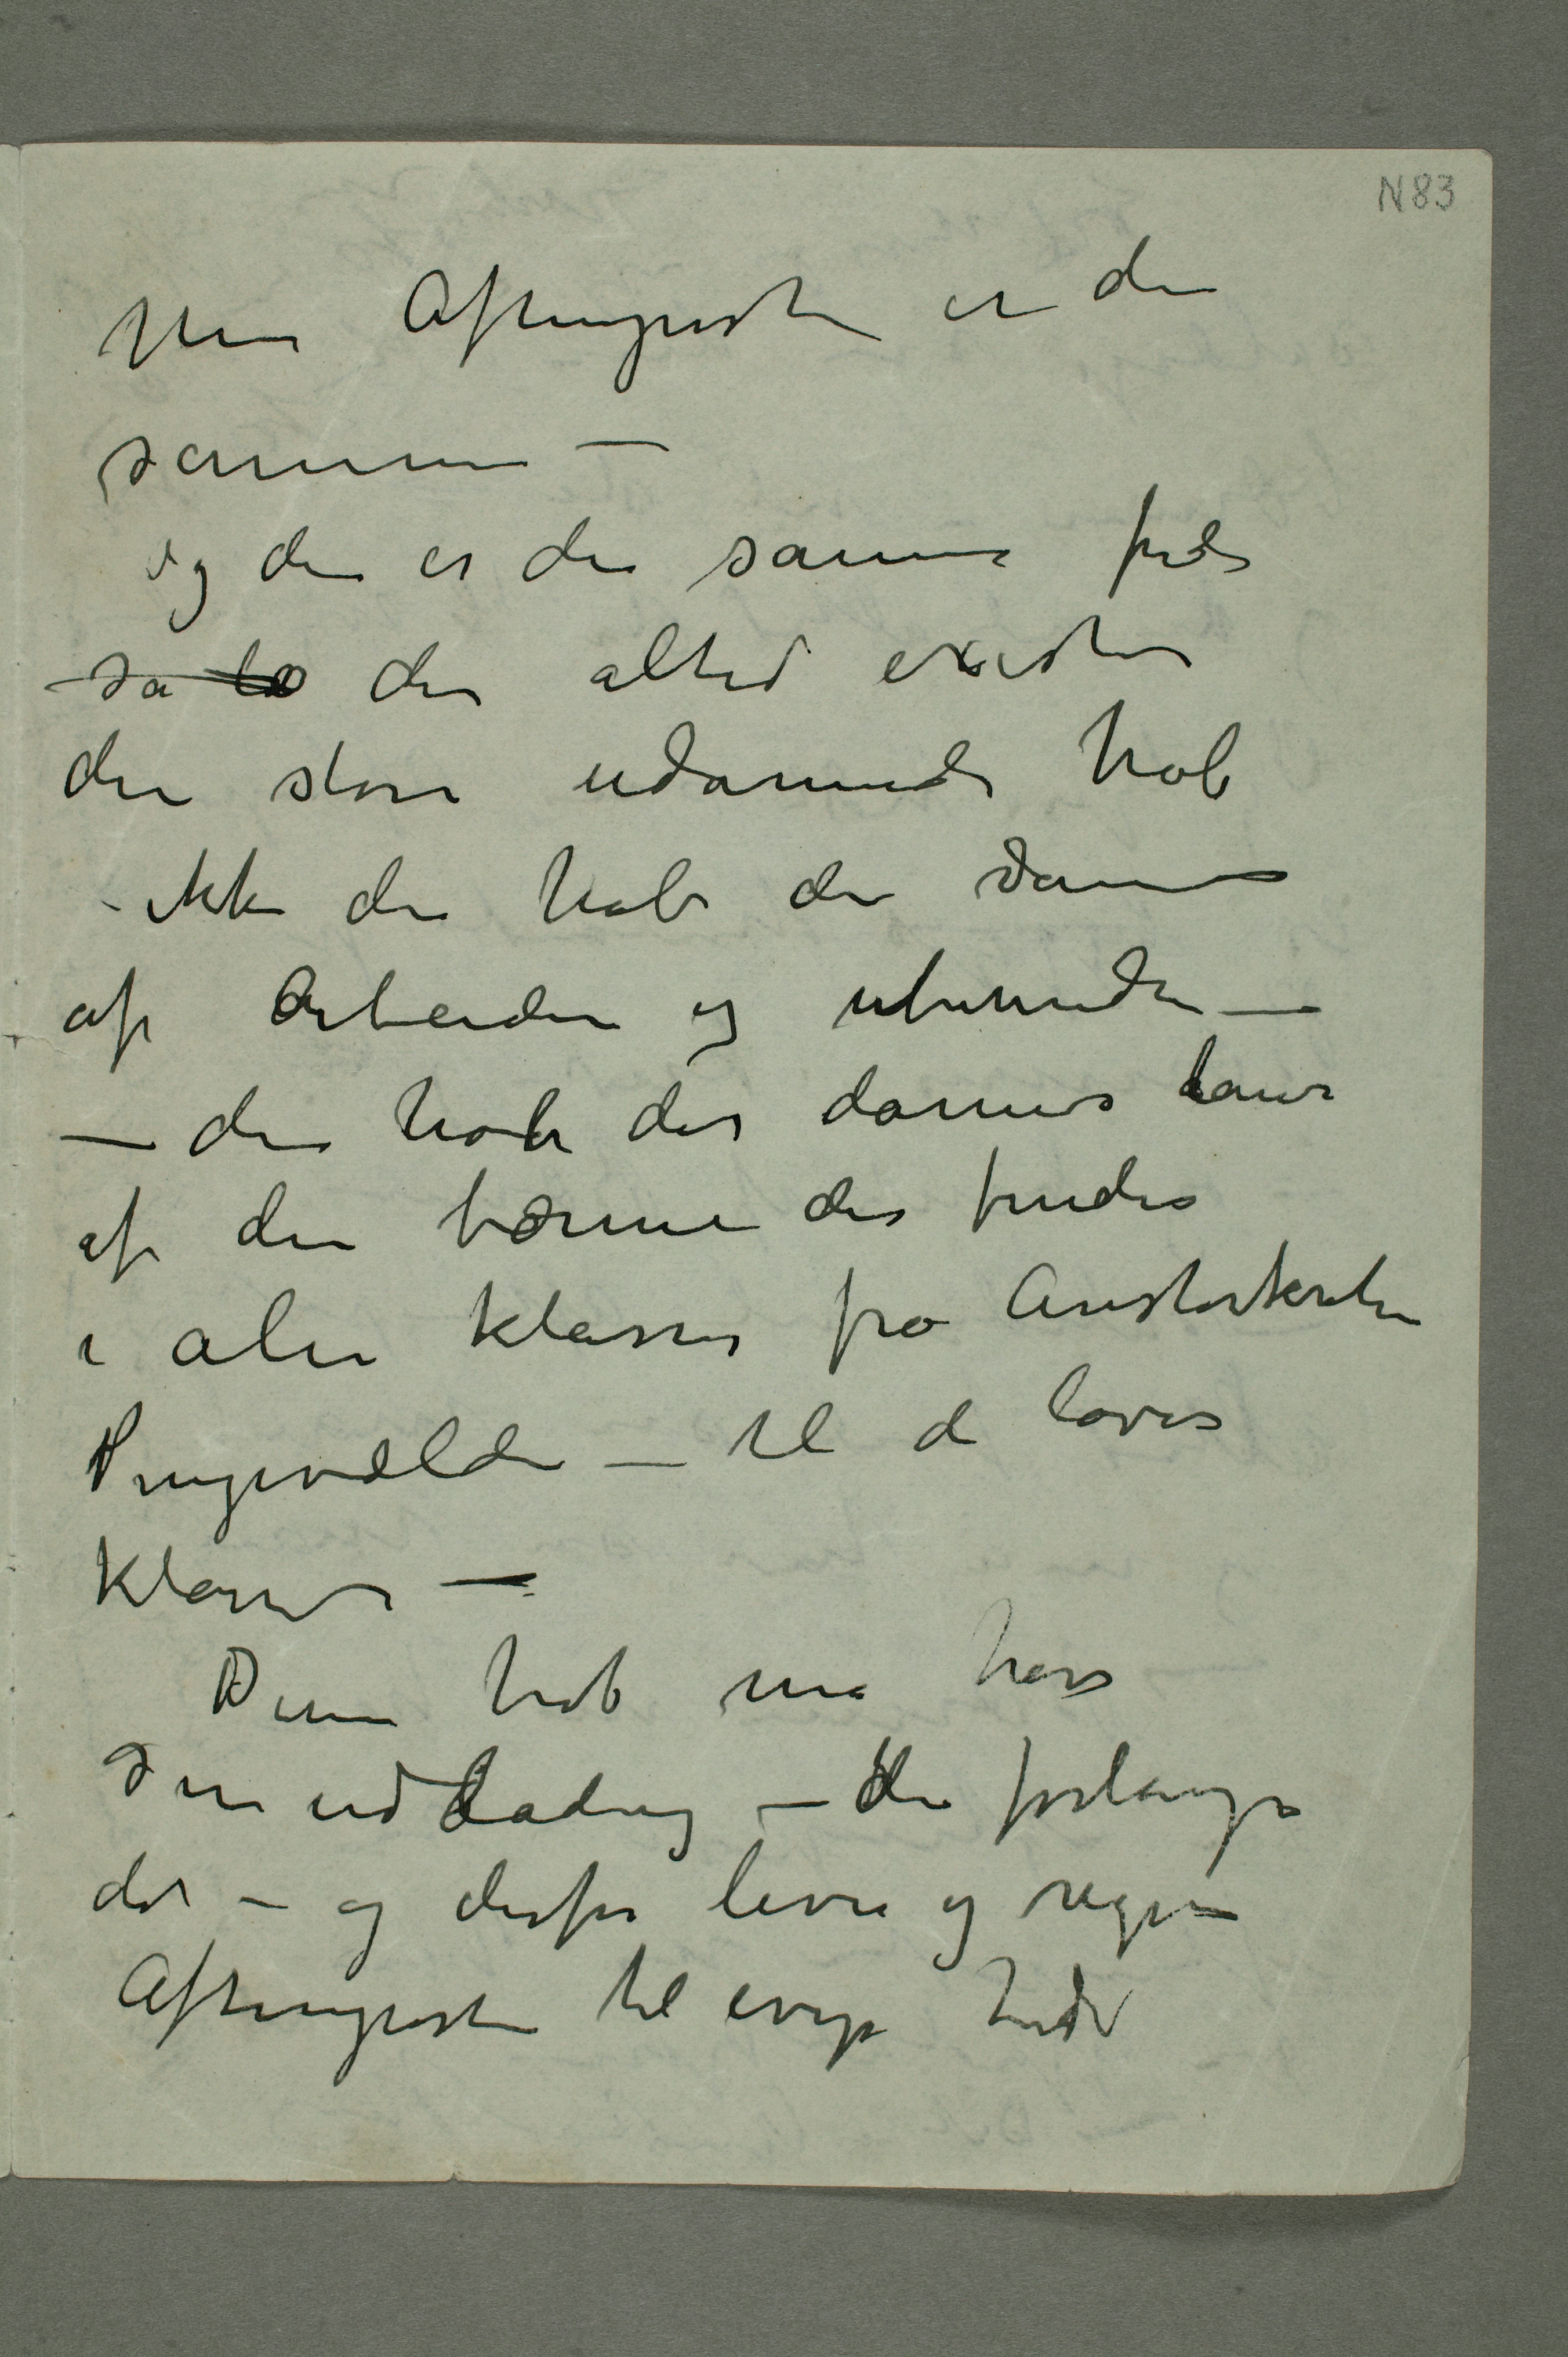 N 83
Men Aftenposten er den
samme –
og den er den samme fordi
så læ der altid existerer
den store udannede hob
– ikke den hob der dannes
af Arbeidere og ubemidlede –
– den hob der dannes bare
af den bærme der findes
i alle klasser fra Aristokratiet
Pengevælden – til de lavere
klasser –
Denne hob må have
sin udladning – den forlanger
det – og derfor lever og regjerer
Aftenposten til evige tider